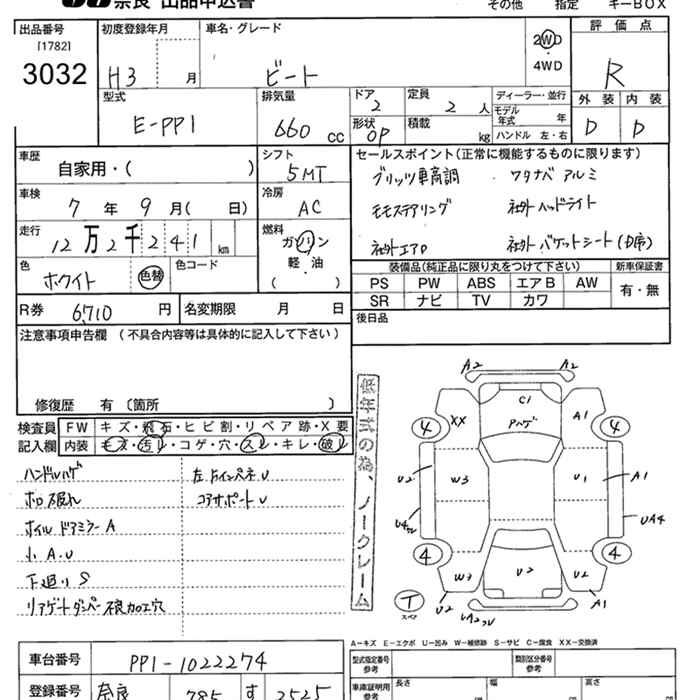 奈良 出品申込書
その他 指定 キーBOX
出品番号
[1782]
3032
初度登録年月
H3 月
車名・グレード
ビート
2WD
・
4WD
評価点
R
型式
E-PP1
排気量
660 cc
ドア
2
形状
OP
定員
2 人
積載
kg
ディーラー・並行
モデル年式 年
ハンドル 左・右
外装 内装
D D
車歴
自家用・( )
シフト
5MT
車検
7年9月( 日)
冷房
AC
走行
12万2千241 km
燃料
ガソリン
軽・油
( )
色
ホワイト 色替
色コード
R券 6,710 円
名変期限 月 日
セールスポイント(正常に機能するものに限ります)
ブリッツ車高調 ワタナベ アルミ
モモステアリング 社外ヘッドライト
社外エアロ 社外バケットシート(D席)
装備品(純正品に限り丸をつけて下さい)
PS PW ABS エアB AW
SR ナビ TV カワ
新車保証書
有・無
後日品
注意事項申告欄 (不具合内容等は具体的に記入して下さい)
修復歴 有〔箇所 〕
検査員記入欄
FW キズ・飛石・ヒビ割・リペア跡・X要
内装 キズ・汚レ・コゲ・穴・スレ・キレ・破レ
ハンドルハゲ 左ドアインパネU
ホロ破れ コアサポートU
ホイルドアミラーA
小A.U
下廻りS
リアゲートダンパー不良加工穴
低年式の為、ノークレーム
A2 A2
C1
Aハゲ
XX A1
4 4
U2 W3 U1 A1
UA4
4 4
W3 U2 U2
U2 A1
T
スペア
A-キズ E-エクボ U-凹み W-補修跡 S-サビ C-腐食 XX-交換済
車台番号 PP1-1022274
登録番号 奈良 785 す 2525
型式指定番号
参考
類別区分番号
参考
車庫証明用
参考
長さ 幅 高さ